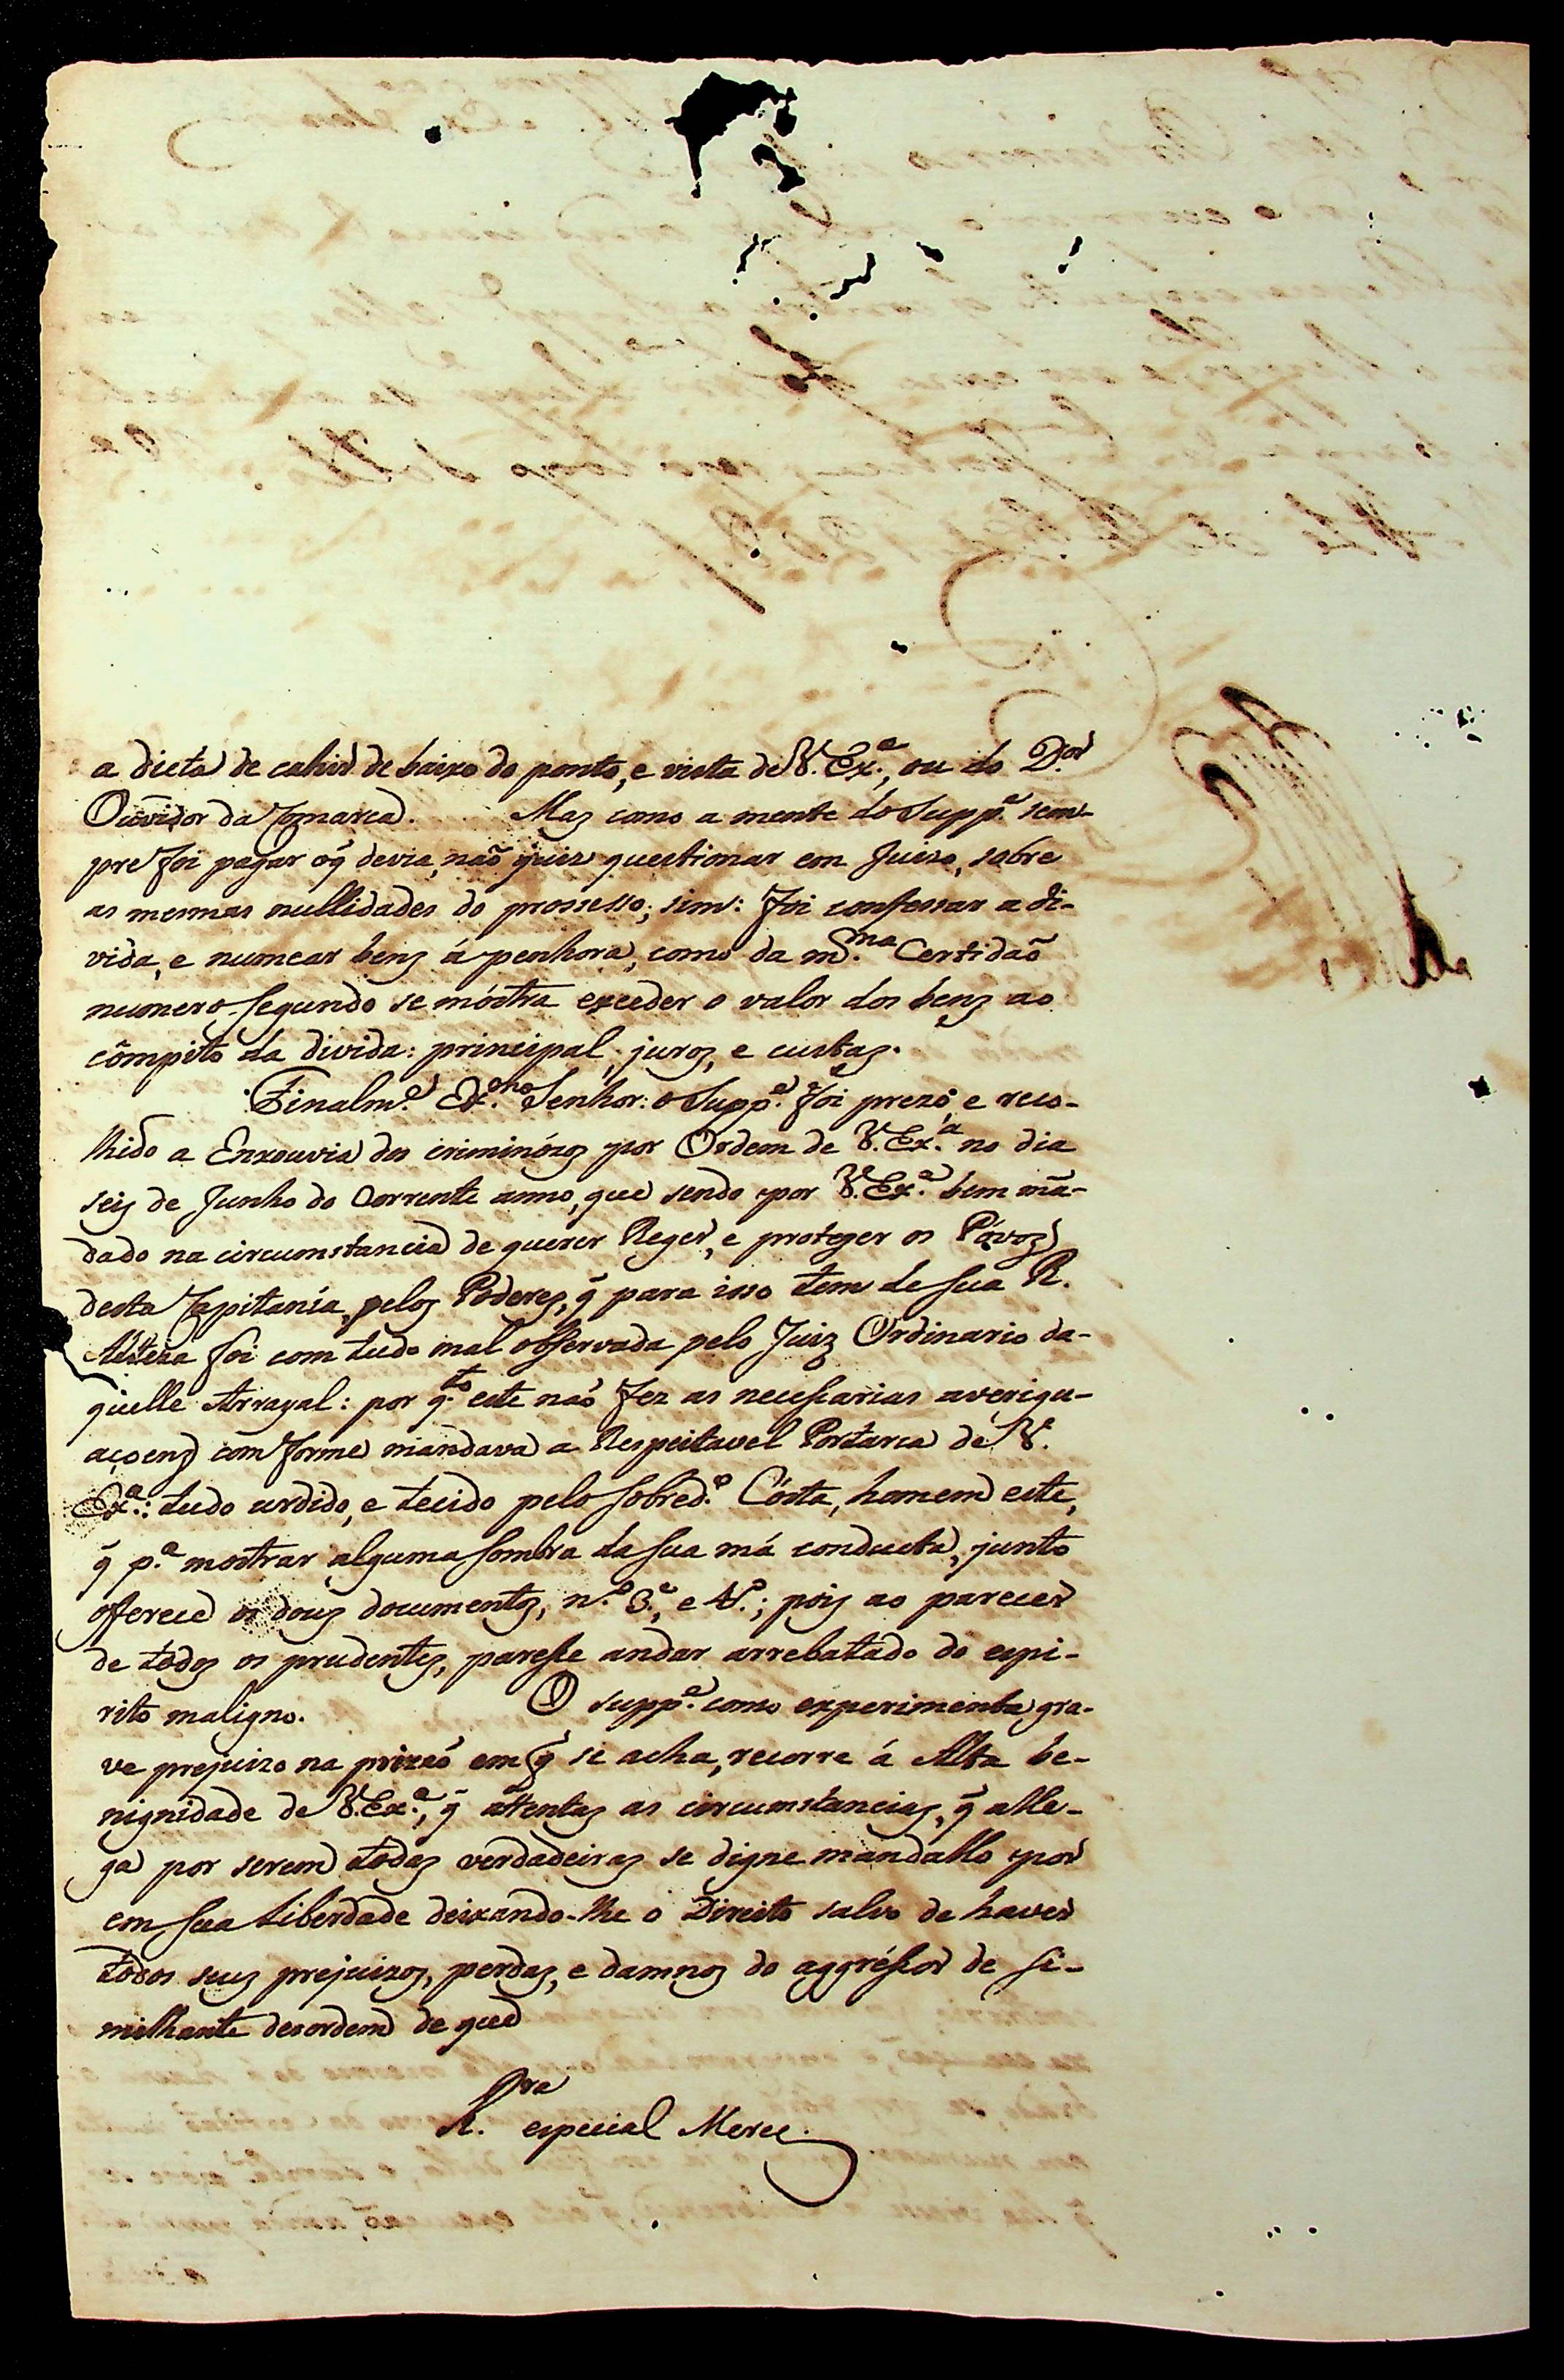 a dicta de cahir de baixo do ponto, e vista de V. Ex.ª, ou do D.or
Ouvidor da Comarca. Mas como a mente do Supp.e sem-
pre foi pagar o q̃ devia, naõ quiz questionar em Juizo, sobre
as mesmas nullidades do prossesso; sim: foi confessar a di-
vida, e numear benz á penhora, como da m.ma Certidaõ
numero segundo se móstra exceder o valor dos benz ao
cômpito da divida: principal, juroz, e custaz.
Finalm.e Ex.mo Senhor: o Supp.e foi prezo, e reco-
lhido a Enxouvia dos criminózoz por Ordem de V. Ex.ª no dia
seiz de Junho do Corrente anno, que sendo por V. Ex.ª bem mã-
dado na circumstancia de querer Reger, e proteger os Póvoz
desta Capitanía, peloz Poderez, q̃ para isso tem de Sua R.
Alteza foi com tudo mal observada pelo Juiz Ordinario da-
quelle Arrayal: por q.to este naõ fez as necessarias averigu-
açoenz com forme mandava a Respeitavel Portarca de V.
Ex.ª: tudo urdido, e tecido pelo sobred.o Cósta, homem este,
q̃ p.ª mostrar alguma sombra da sua má conducta, junto
offerece os douz documentoz, n.º 3.º, e 4.º; poiz ao parecer
de tôdoz os prudentez, paresse andar arrebatado do espi-
rito maligno. O supp.e como experimenta gra-
ve prejuizo na prizaõ em q̃ se acha, recorre á Alta be-
nignidade de V. Ex.ª, q̃ attentaz as circumstanciaz, q̃ alle-
ga por serem todaz verdadeiraz se digne mandallo por
em sua Liberdade deixando-lhe o Direito salvo de haver
tôdos seuz prejuizoz, perdaz, e damnoz do aggréssor de si-
milhante desordem de que
R.
especial Merce.